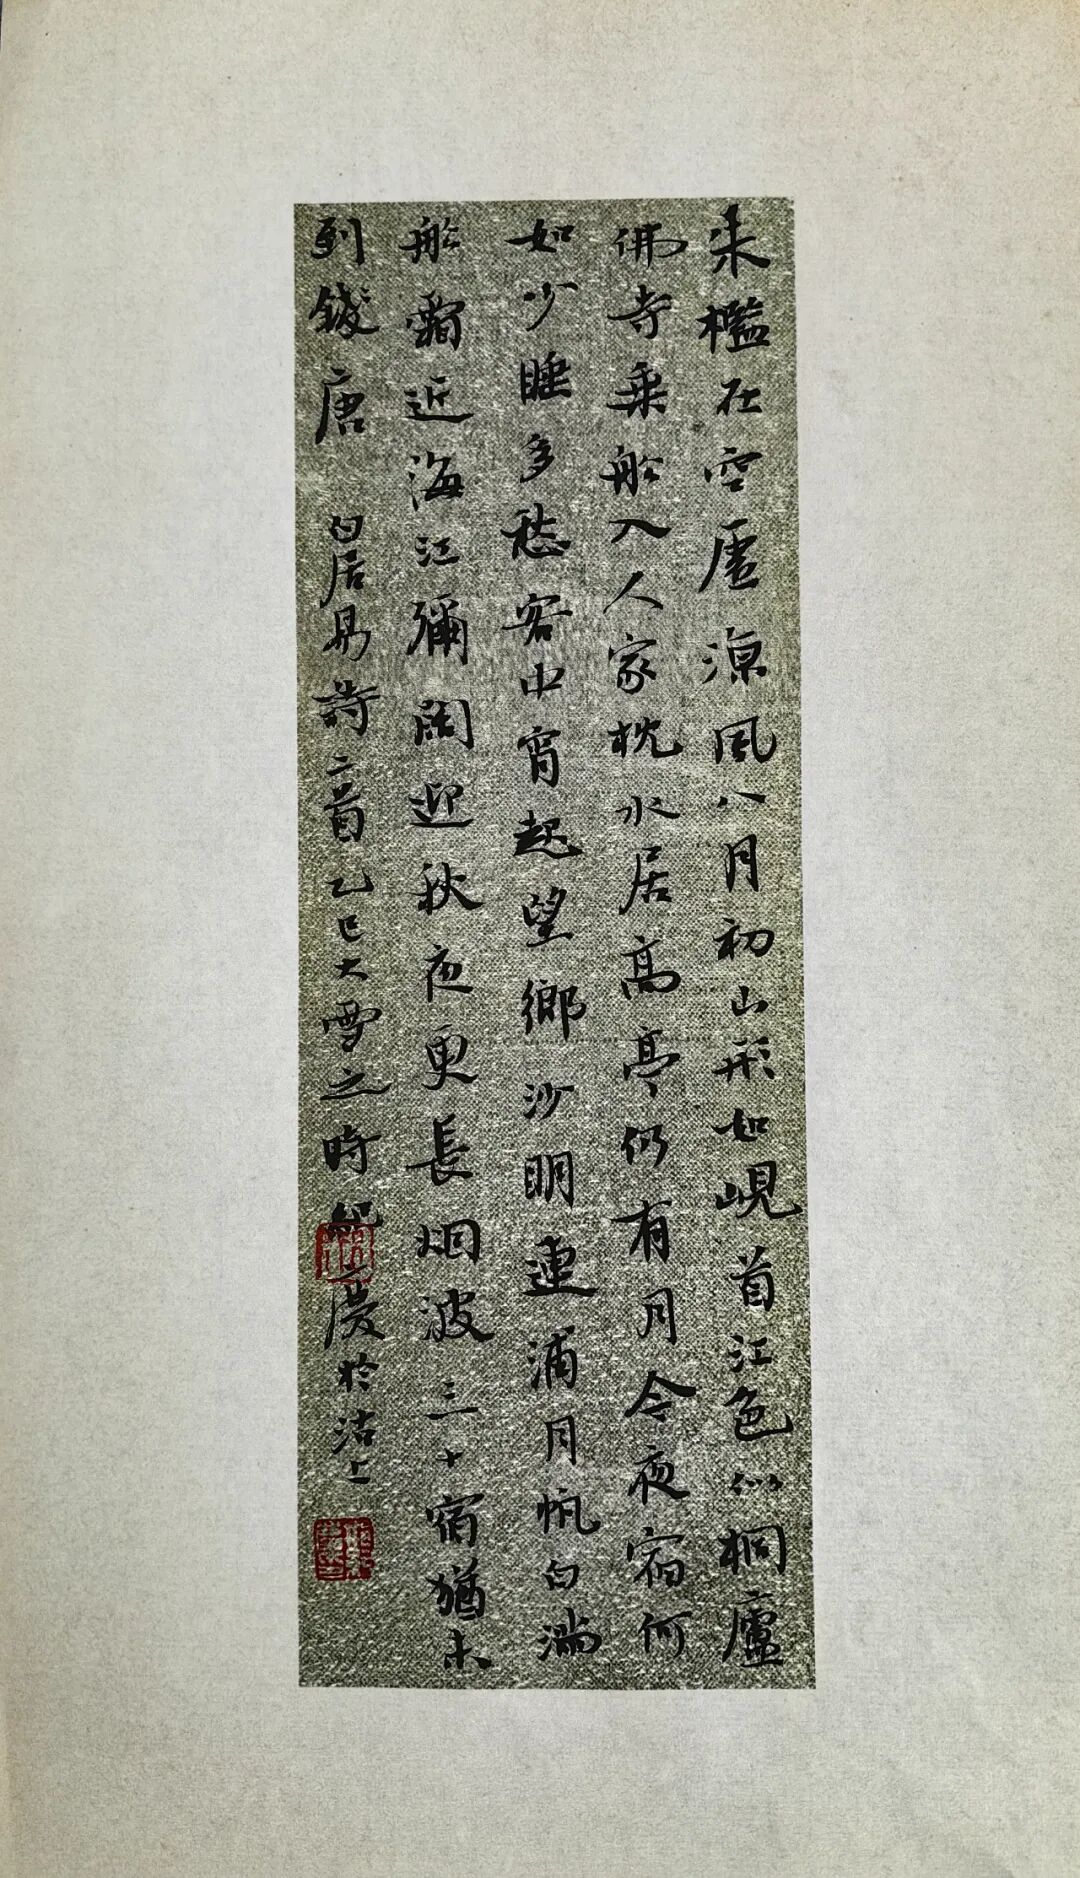 朱檻在空虛涼風八月初山形如峴首江色似桐廬
佛寺乘船入人家枕水居高亭仍有月今夜宿何
如少睡多愁客中宵起望鄉沙明連浦月帆白滿
船霜近海江彌闊迎秋夜更長烟波三十宿猶未
到錢唐 白居易詩二首乙巳大雪之時 慶於沽上